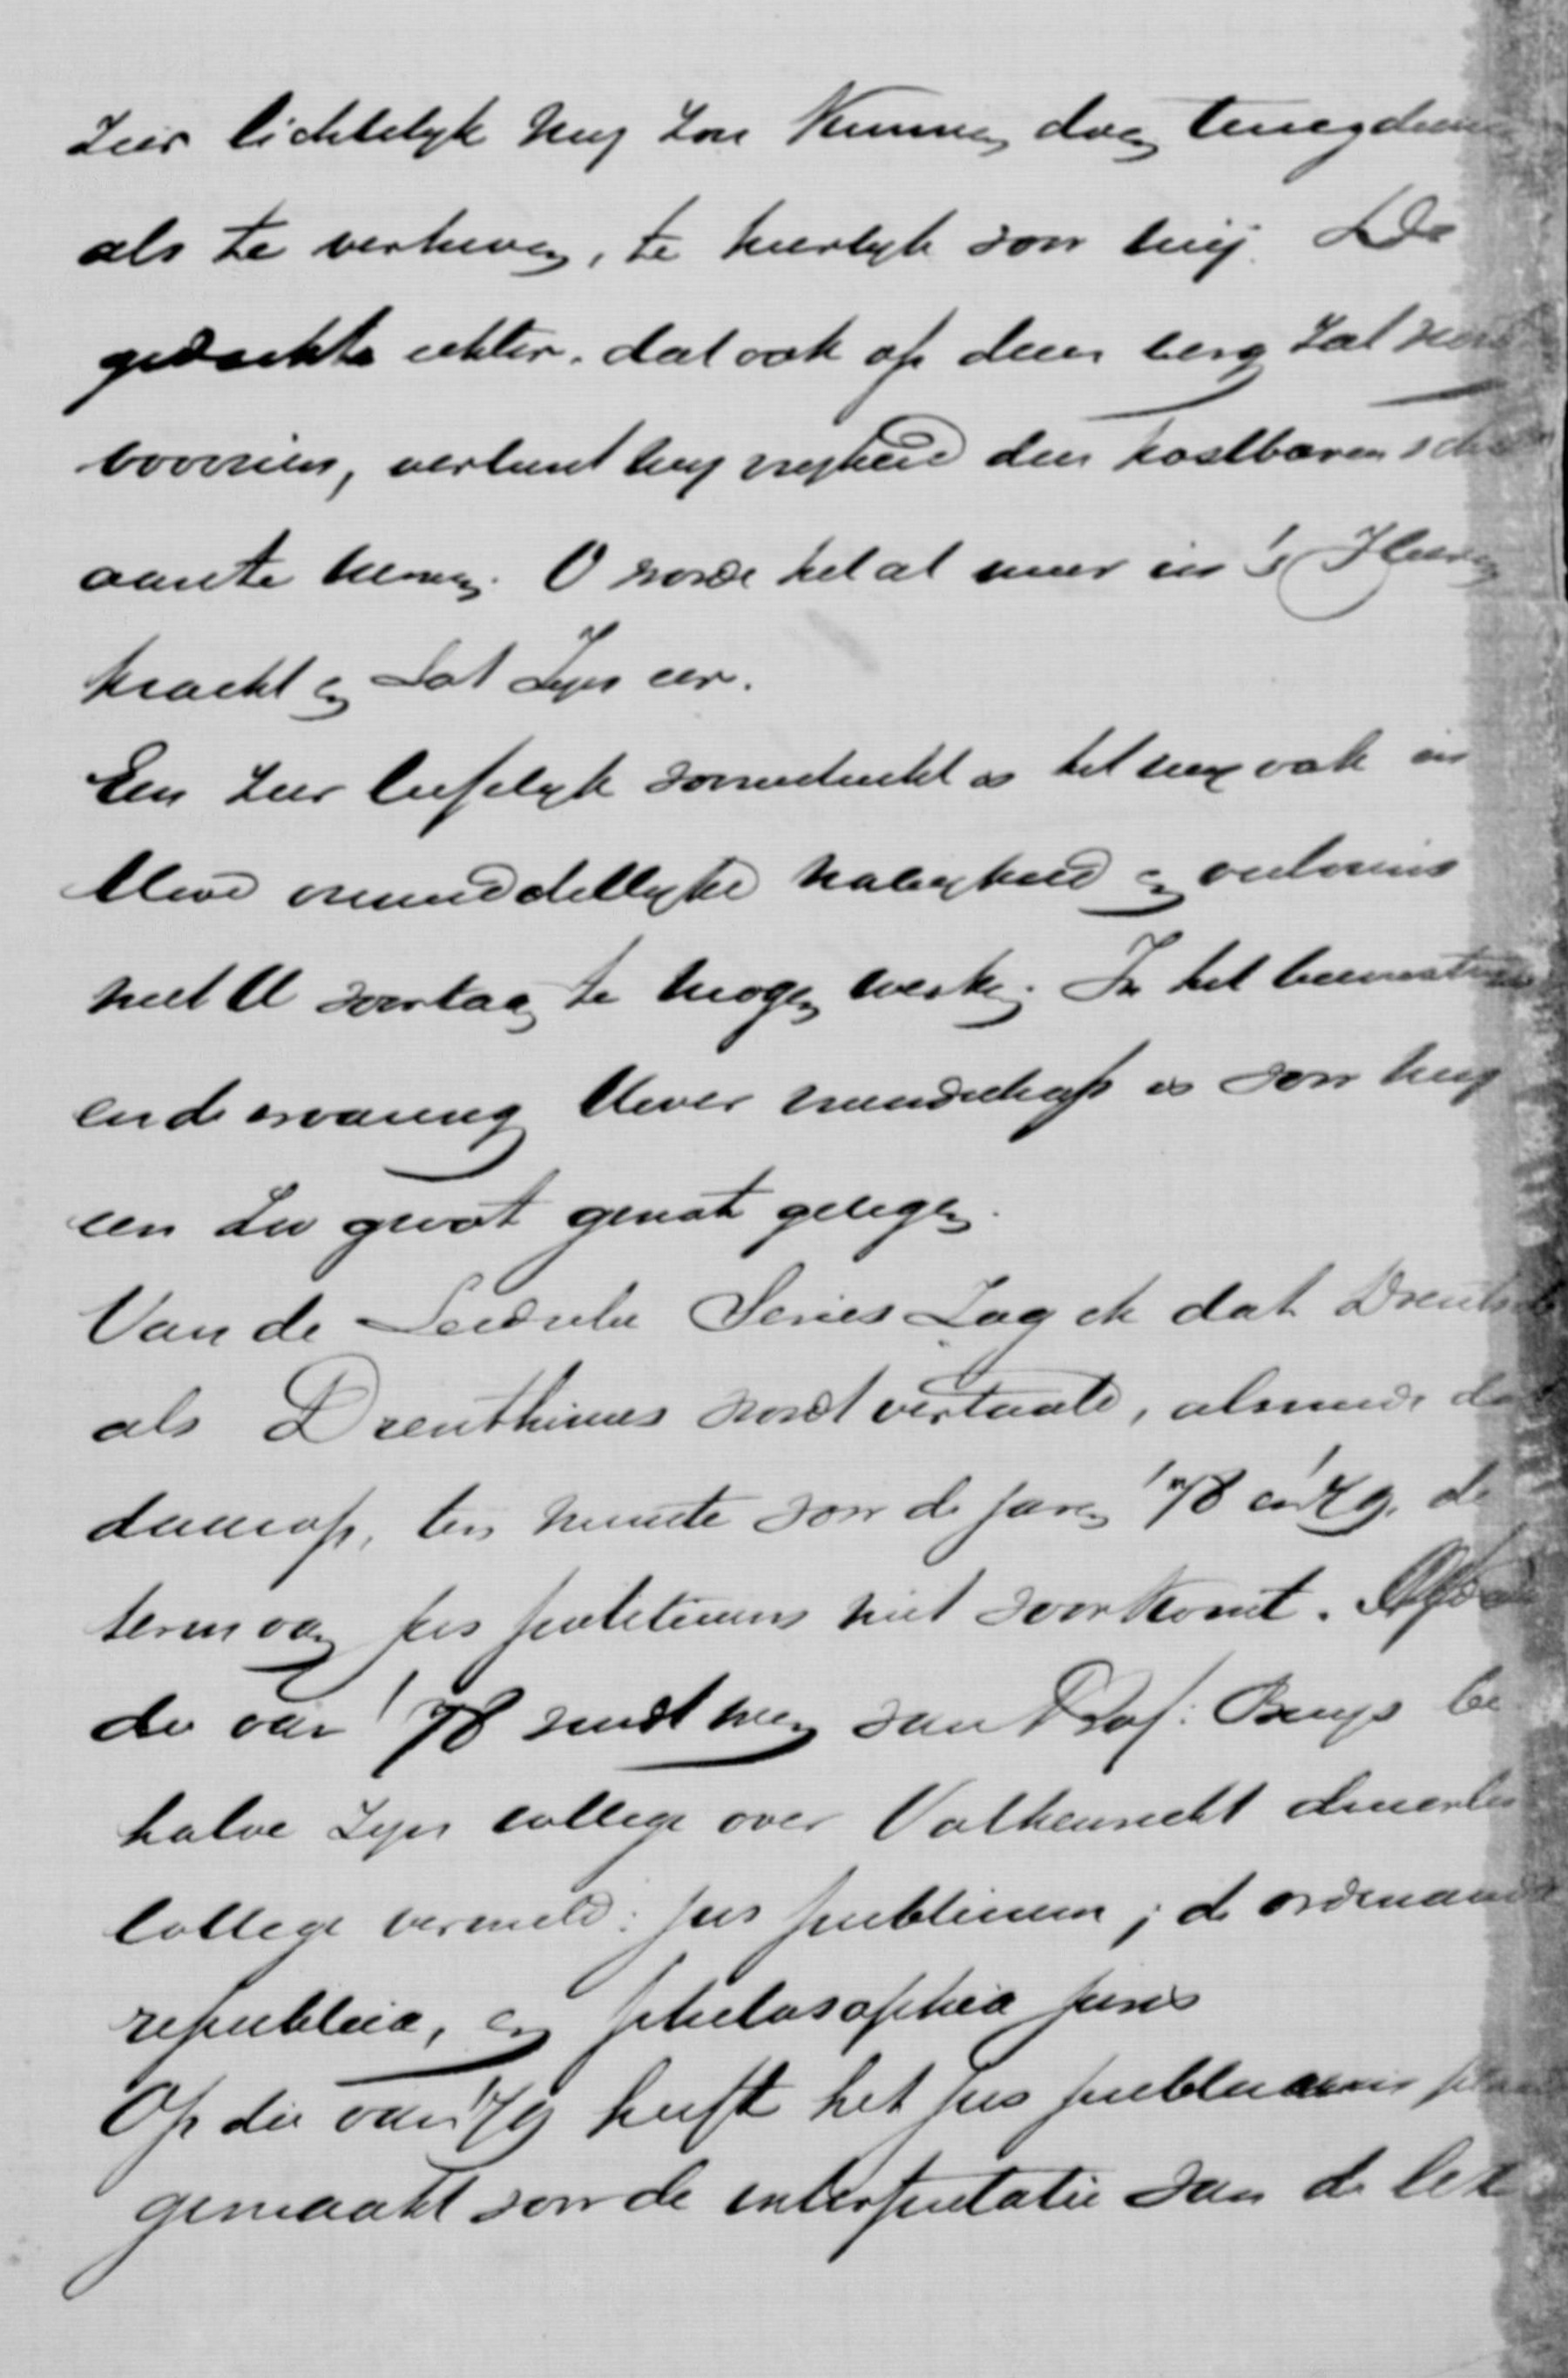 zeer lichtelyk my zou kunnen doen terugdeinzen
als te verheven, te heerlyk voor my. De
gedachte echter, dat ook op deze berg zal
voorzien, verleent my vryheid den kostbaren
aan te nemen. O worde het al meer in 's Heeren
kracht en tot Zyn eer.
Een zeer liefelyk vooruitzicht is het my ook in
Uwe onmiddellyke nabyheid en
met U voortaan te mogen werken. In het
en de ervaring Uwer vriendschap is voor my
een zeer groot genot gelegen.
Van de Leidsche Series zag ik dat
als Drenthinus wordt vertaald, alsmede
daarop, ten minste voor de jaren '78 en '79, de
term van jus politicum niet voorkomt. Op
die van '78 vindt men van Prof. Buys be
halve zyn college over Volkenrecht
college vermeld: jus publicum; de ordinanda
republica, en philosophia juris
Op die van '79 heeft het jus publicum
gemaakt voor de interpretatie van de